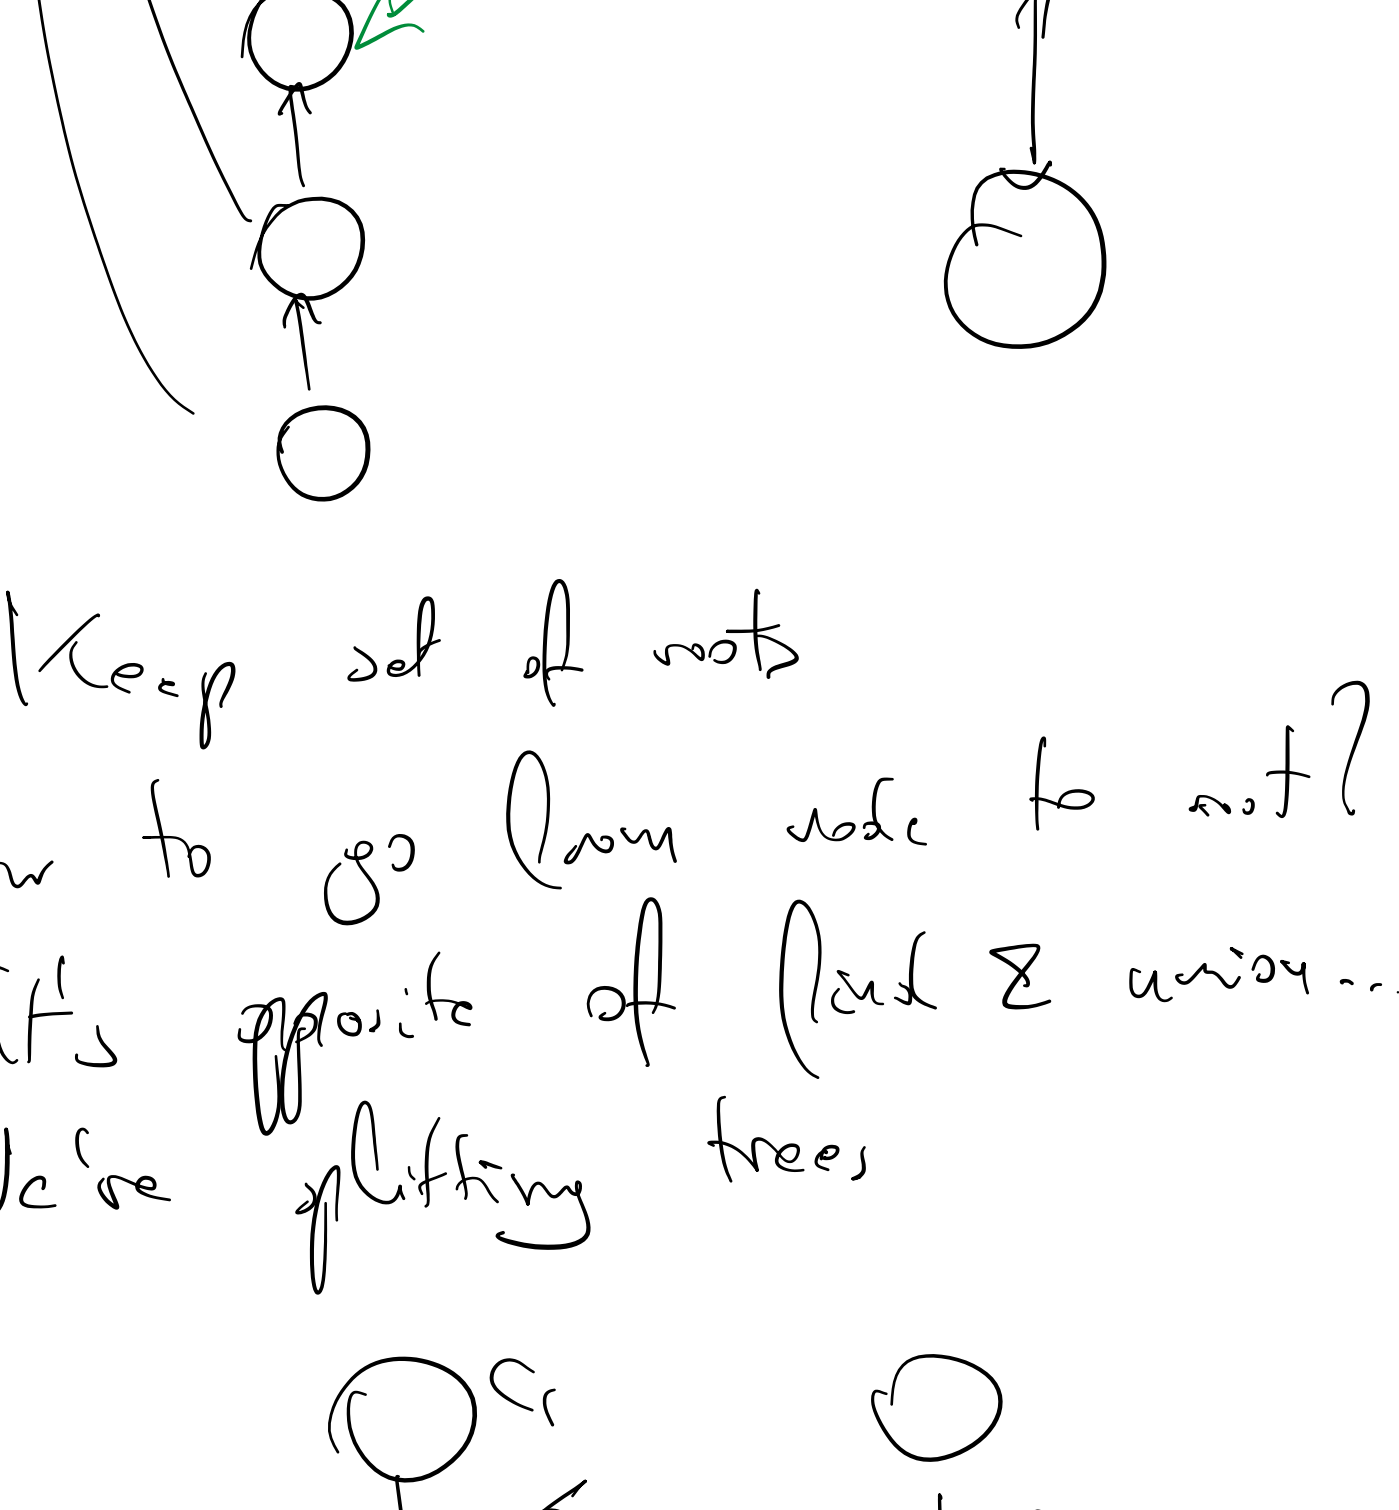 Keep set of roots
w to go from node to root?
it's opposite of find & union...
We're splitting trees
Cr